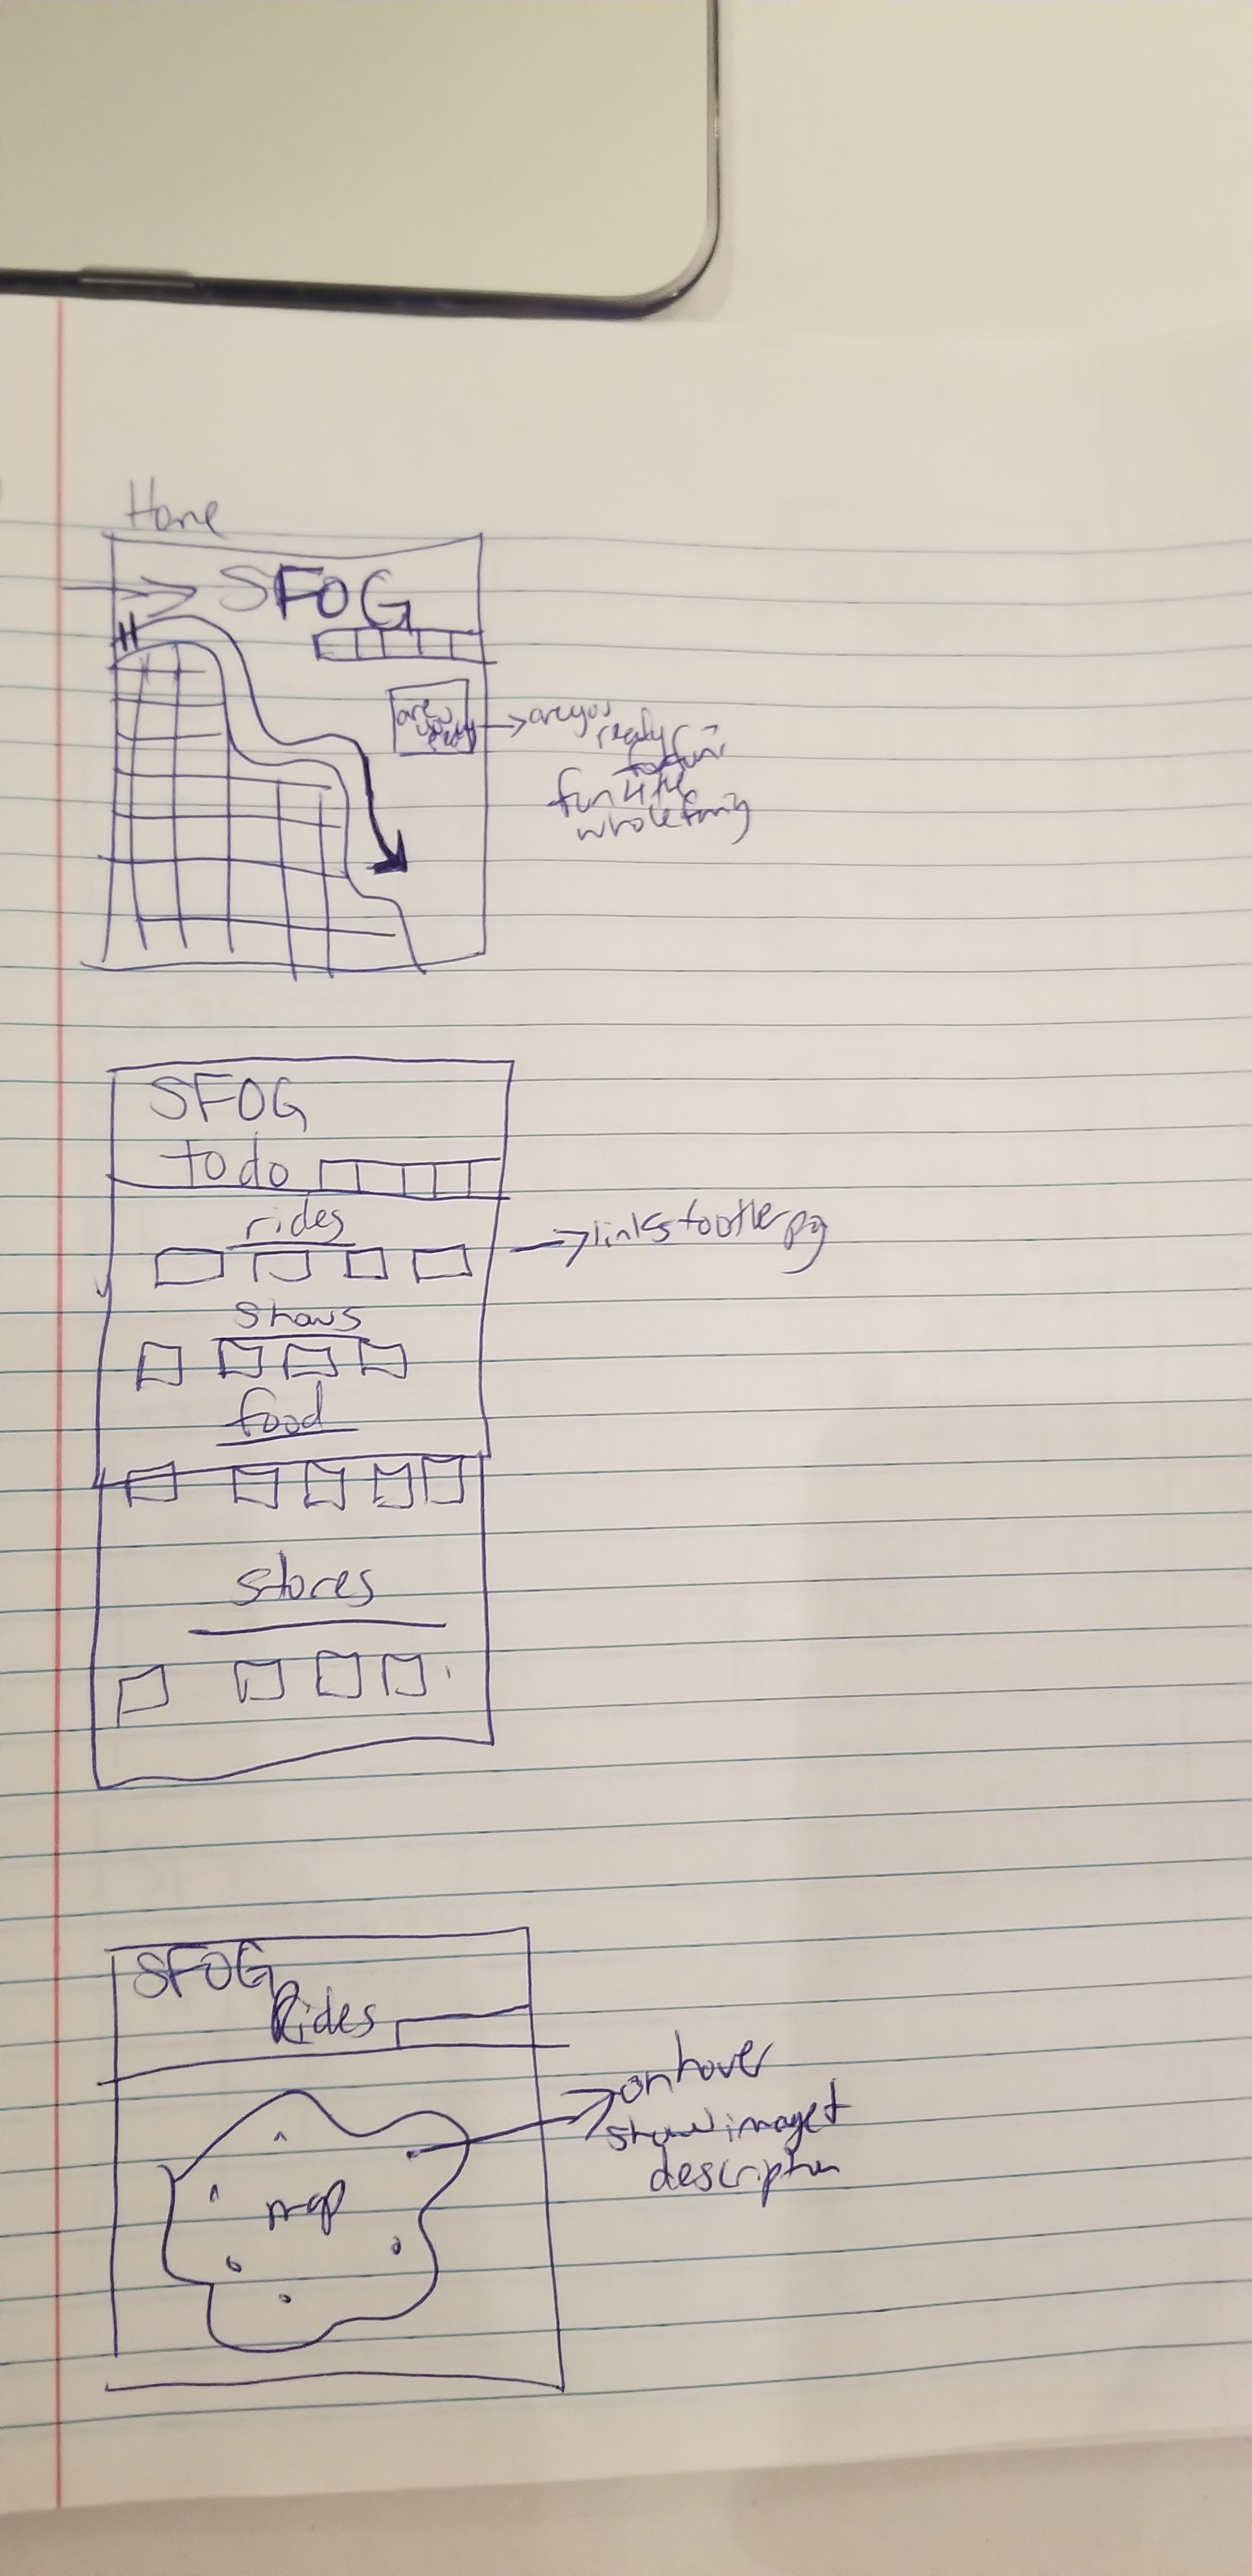 Home
SFOG
are
you
ready
are you
ready
fun 4 the
whole family
SFOG
to do
rides
links to other pg
shows
food
stores
SFOG
Rides
on hover
show image +
description
map